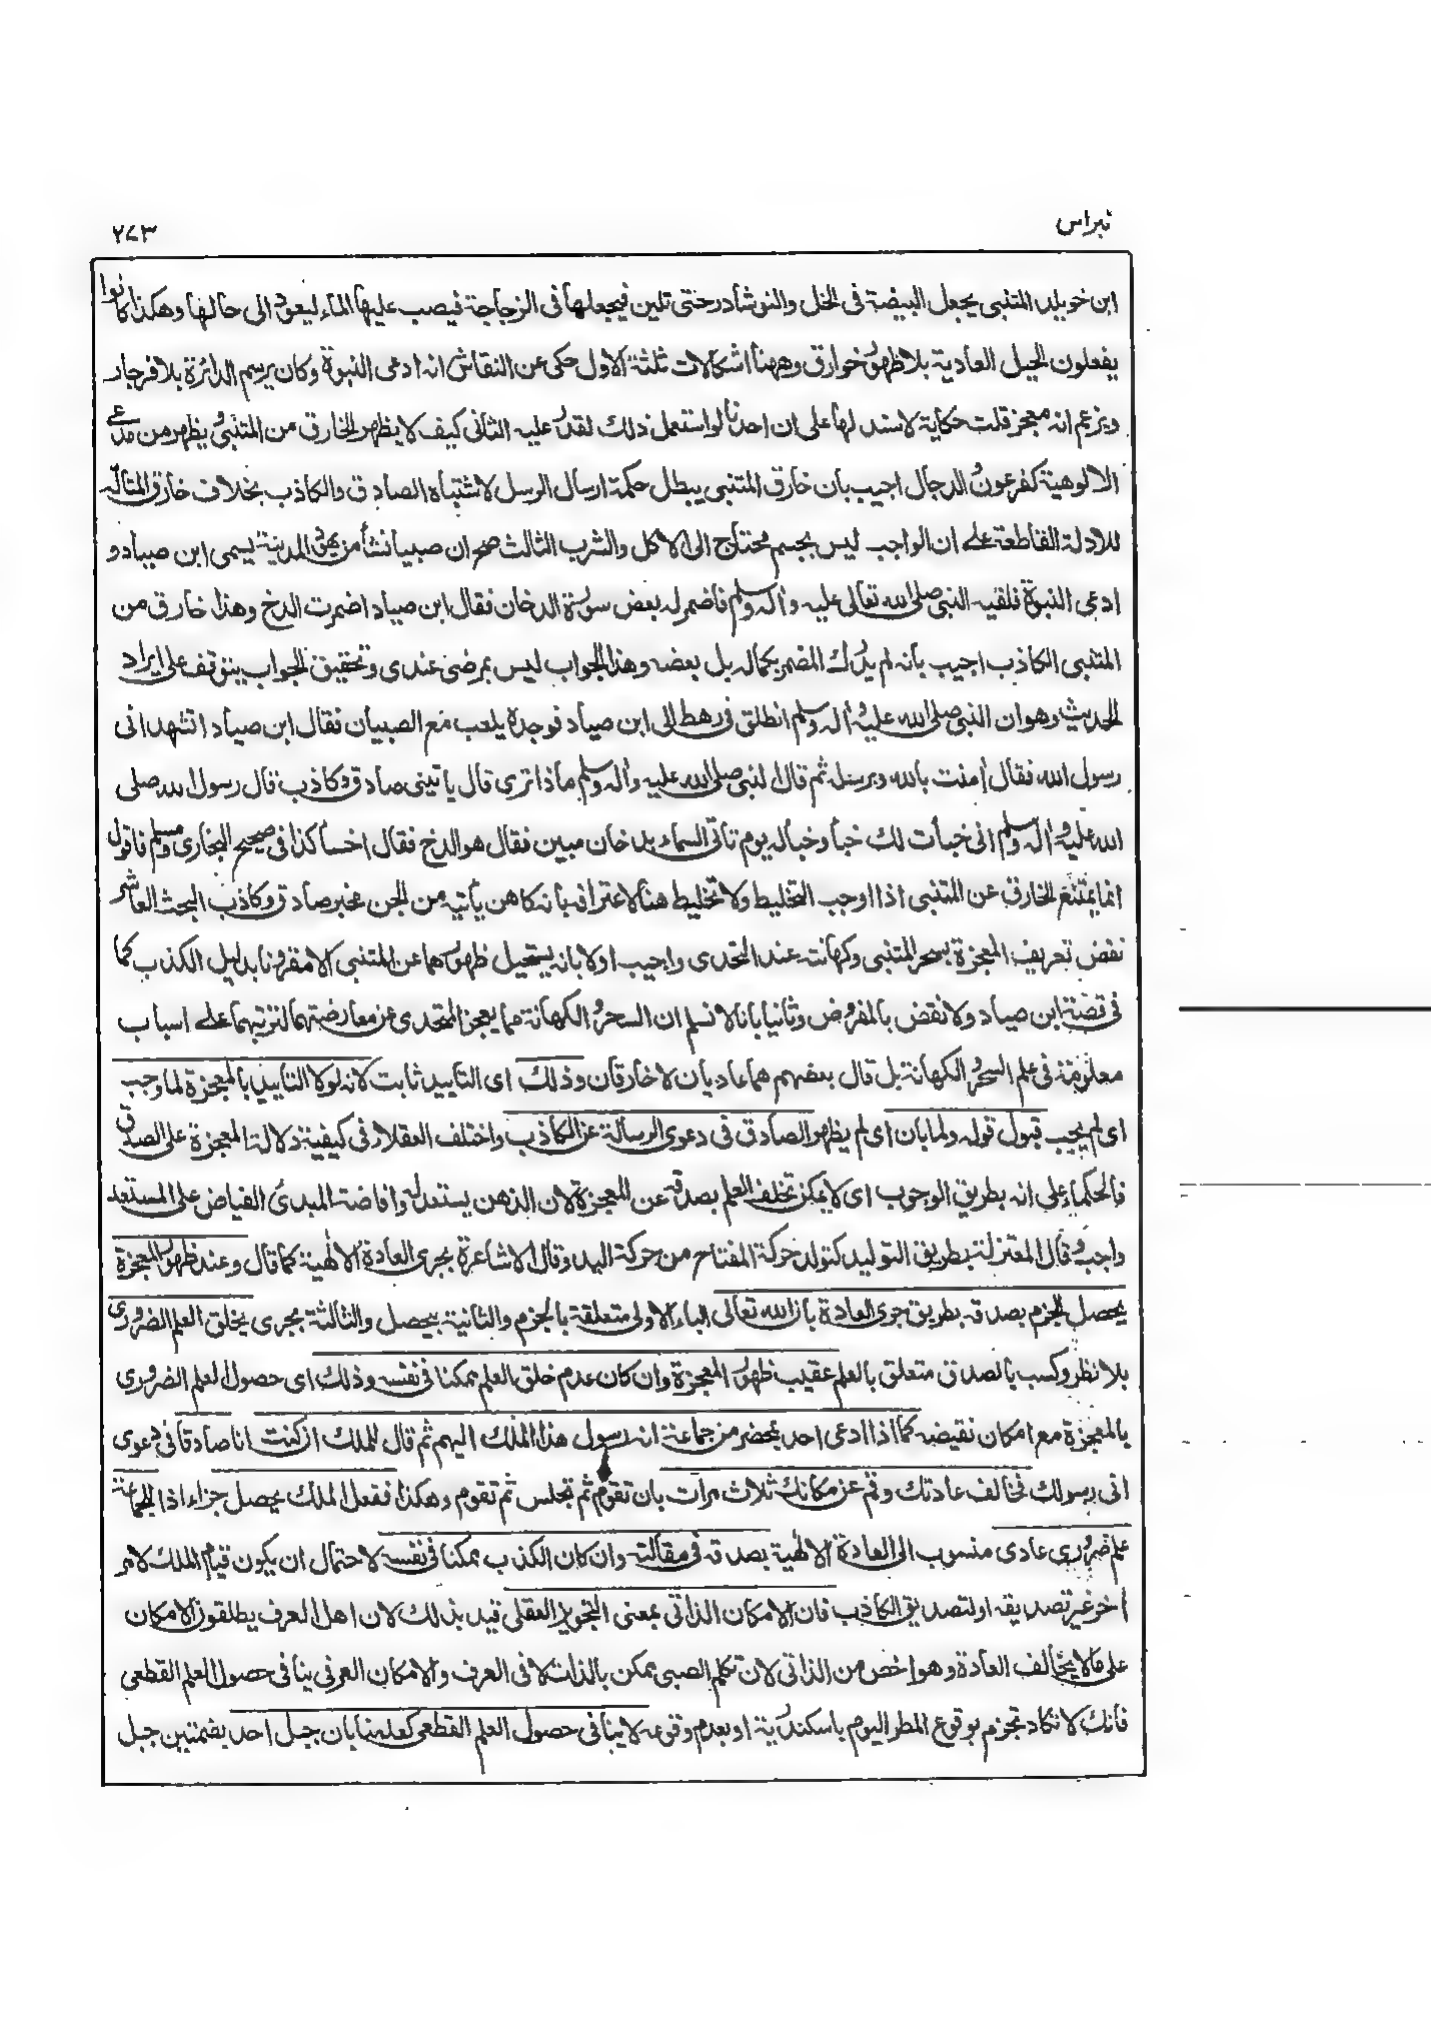 نبراس
٢٧٣
ابن خويلد المتنبى يجعل البيضة فى الخل والنوشادر حتى تلين فيجعلها فى الزجاجة فيصب عليها الماء ليعود الى حالها وهكذا كانوا
يفعلون الحيل العادية بلا ظهور خوارق وههنا اشكالات ثلثة الاول حكى عن النقاش انه ادعى النبوة وكان يرسم الدائرة بلا فرجار
ويزعم انه معجز قلت حكاية لا سند لها على ان احدنا لو استعمل ذلك لقدر عليه الثانى كيف لا يظهر الخارق من المتنبى ويظهر من مدعى
الالوهية كفرعون والدجال اجيب بان خارق المتنبى يبطل حكمة ارسال الرسل لاشتباه الصادق والكاذب بخلاف خارق المتأله
للادلة القاطعة على ان الواجب ليس بجسم محتاج الى الاكل والشرب الثالث صح ان صبيا نشأ من يهود المدينة يسمى ابن صياد و
ادعى النبوة فلقيه النبى صلى الله تعالى عليه وآله وسلم فاضمر له بعض سورة الدخان فقال ابن صياد اضمرت الدخ وهذا خارق من
المتنبى الكاذب اجيب بانه لم يدرك المضمر بكماله بل بعضه وهذا الجواب ليس بمرضى عندى وتحقيق الجواب يتوقف على ايراد
الحديث وهو ان النبى صلى الله عليه وآله وسلم انطلق فى رهط الى ابن صياد فوجده يلعب مع الصبيان فقال ابن صياد اتشهد انى
رسول الله فقال أمنت بالله وبرسله ثم قال النبى صلى الله عليه وآله وسلم ماذا ترى قال ياتينى صادق وكاذب قال رسول الله صلى
الله عليه وآله وسلم انى خبأت لك خبأ وخبأ له يوم تاتى السماء بدخان مبين فقال هو الدخ فقال اخسأ كذا فى صحيح البخارى ومسلم فاقول
انما يمتنع الخارق عن المتنبى اذا اوجب التخليط ولا تخليط هنا لاعترافه بانه كاهن يأتيه من الجن مخبر صادق وكاذب البحث العاشر
نقض تعريف المعجزة بسحر المتنبى وكهانته عند التحدى واجيب اولا بانه يستحيل ظهورهما عن المتنبى الا مقرونا بدليل الكذب كما
فى قصة ابن صياد ولا نقض بالمفروض وثانيا بانا لا نسلم ان السحر والكهانة مما يعجز المتحدى عن معارضتهما لترتبهما على اسباب
معلومة فى علم السحر والكهانة بل قال بعضهم هما عاديان لا خارقان وذلك اى التاييد ثابت لانه لولا التاييد بالمعجزة لما وجب
اى لم يجب قبول قوله ولما بان اى لم يظهر الصادق فى دعوى الرسالة عن الكاذب واختلف العقلاء فى كيفية دلالة المعجزة على الصدق
فالحكماء على انه بطريق الوجوب اى لا يمكن تخلف العلم بصدقه عن المعجزة لان الذهن يستعد له وافاضة المبدئ الفياض على المستعد
واجب وقال المعتزلة بطريق التوليد كتولد حركة المفتاح من حركة اليد وقال الاشاعرة بجرى العادة الالهية كما قال وعند ظهور المعجزة
يحصل الجزم بصدقه بطريق جرى العادة بان الله تعالى الباء الاولى متعلقة بالجزم والثانية بيحصل والثالثة بجرى يخلق العلم الضرورى
بلا نظر وكسب بالصدق متعلق بالعلم عقيب ظهور المعجزة وان كان عدم خلق العلم ممكنا فى نفسه وذلك اى حصول العلم الضرورى
بالمعجزة مع امكان نقيضه كما اذا ادعى احد بمحضر من جماعة انه رسول هذا الملك اليهم ثم قال للملك ان كنت انا صادقا فى دعوى
انى رسولك فخالف عادتك وقم عن مكانك ثلاث مرات بان تقوم ثم تجلس ثم تقوم وهكذا ففعل الملك يحصل جزاء اذا للجماعة
علم ضرورى عادى منسوب الى العادة الالهية بصدقه فى مقالته وان كان الكذب ممكنا فى نفسه لاحتمال ان يكون قيام الملك لامر
أخر غير تصديقه او لتصديق الكاذب فان الامكان الذاتى بمعنى التجويز العقلى قيد بذلك لان اهل العرف يطلقون الامكان
على ما لا يخالف العادة وهو اخص من الذاتى لان تكلم الصبى ممكن بالذات لا فى العرف والامكان العرفى ينافى حصول العلم القطعى
فانك لا تكاد تجزم بوقوع المطر اليوم باسكندرية او بعدم وقوعه لا ينافى حصول العلم القطعى كعلمنا بان جبل احد بضمتين جبل